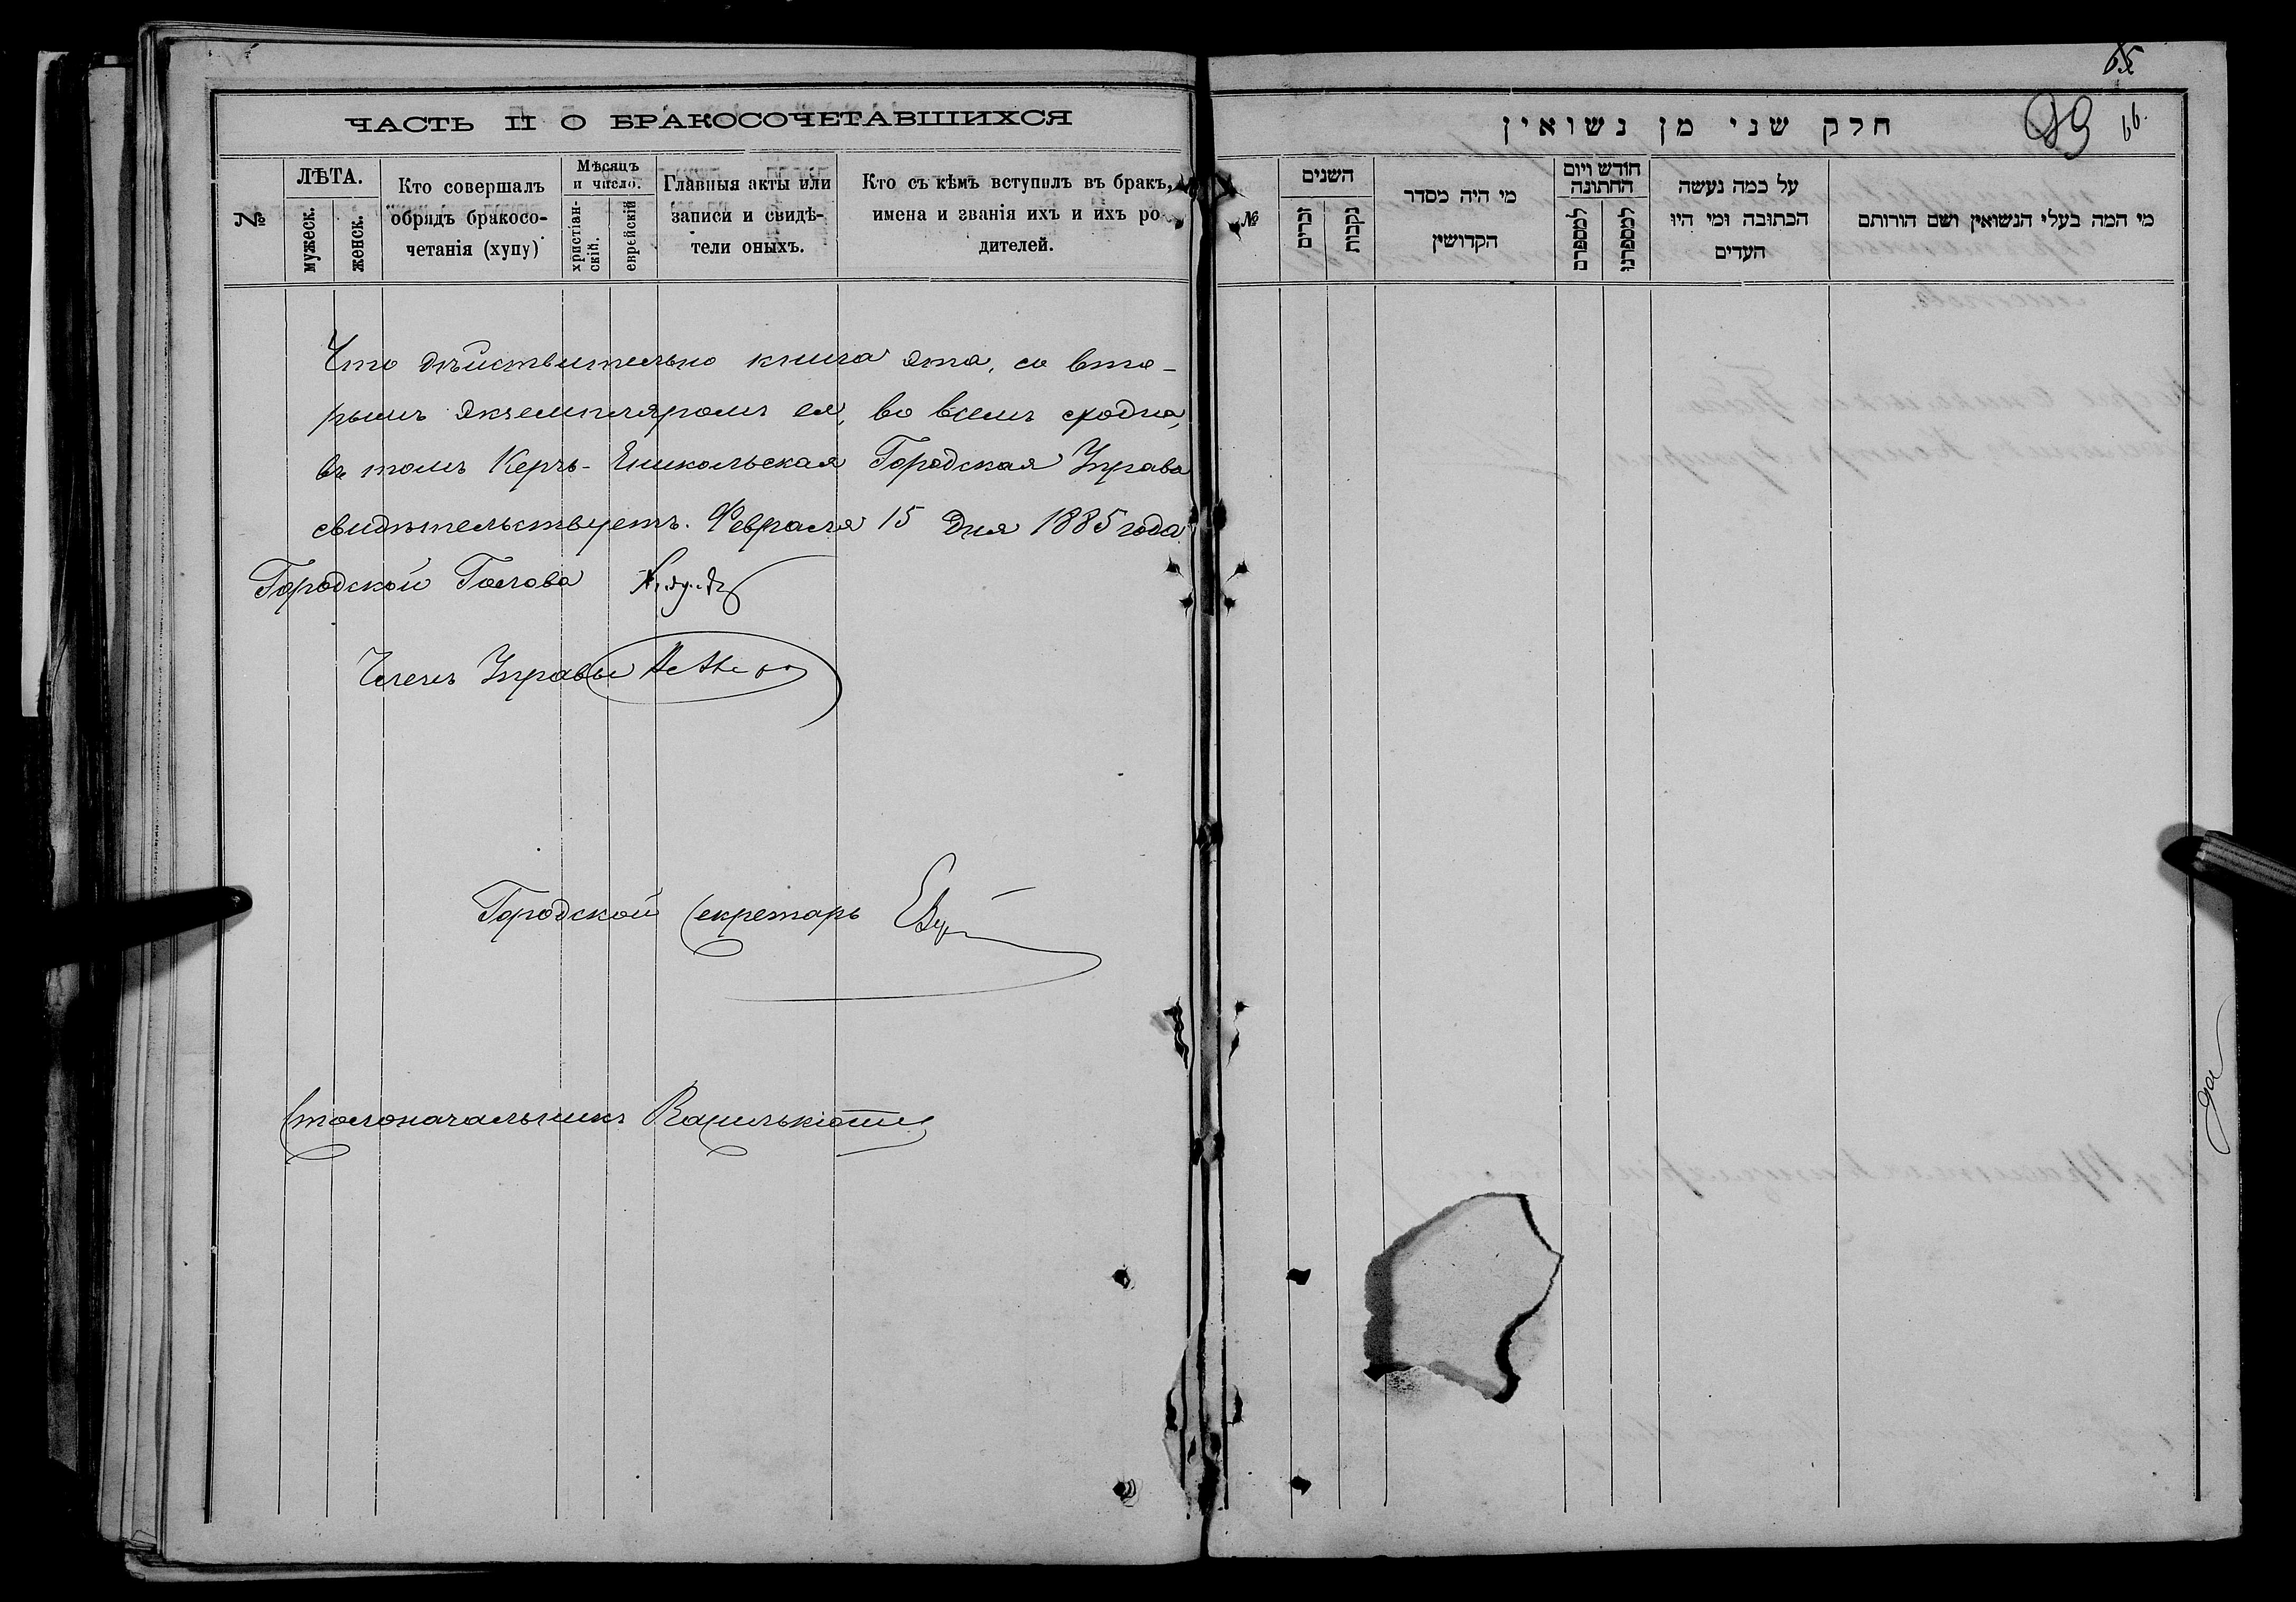 ЧАСТЬ II О БРАКОСОЧЕТАВШИХСЯ
№
ЛѢТА.
мужеск.
женск.
Кто совершалъ
обрядъ бракосо-
четанія (хупу)
Мѣсяцъ
и число.
христіан-
скій.
еврейскій
Главныя акты или
записи и свидѣ-
тели оныхъ.
Кто съ кѣмъ вступилъ въ бракъ,
имена и званія ихъ и ихъ ро
дителей.
Что дѣйствительно книга эта, со вто-
рымъ экземпляромъ ея, во всемъ сходна,
въ томъ Керчь-Еникольская Городская Управа
свидѣтельствуетъ. Февраля 15 дня 1885 года.
Городской Голова
Членъ Управы
Городской Секретарь
Столоначальникъ
65
66.
חלק שני מן נשואין
№
השנים
זכרים
נקבות
מי היה מסדר
הקדושין
חודש ויום
החתונה
למספרם
למספרנו
על כמה נעשה
הכתובה ומי היו
העדים
מי המה בעלי הנשואין ושם הורותם